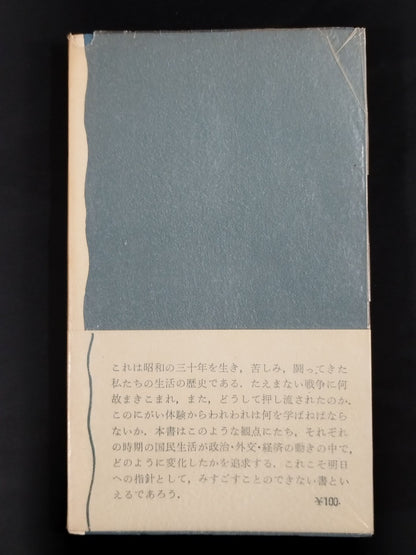 これは昭和の三十年を生き，苦しみ，闘ってきた
私たちの生活の歴史である．たえまない戦争に何
故まきこまれ，また，どうして押し流されたのか．
このにがい体験からわれわれは何を学ばねばなら
ないか．本書はこのような観点にたち，それぞれ
の時期の国民生活が政治・外交・経済の動きの中で，
どのように変化したかを追求する．これこそ明日
への指針として，みすごすことのできない書とい
えるであろう．
¥100.